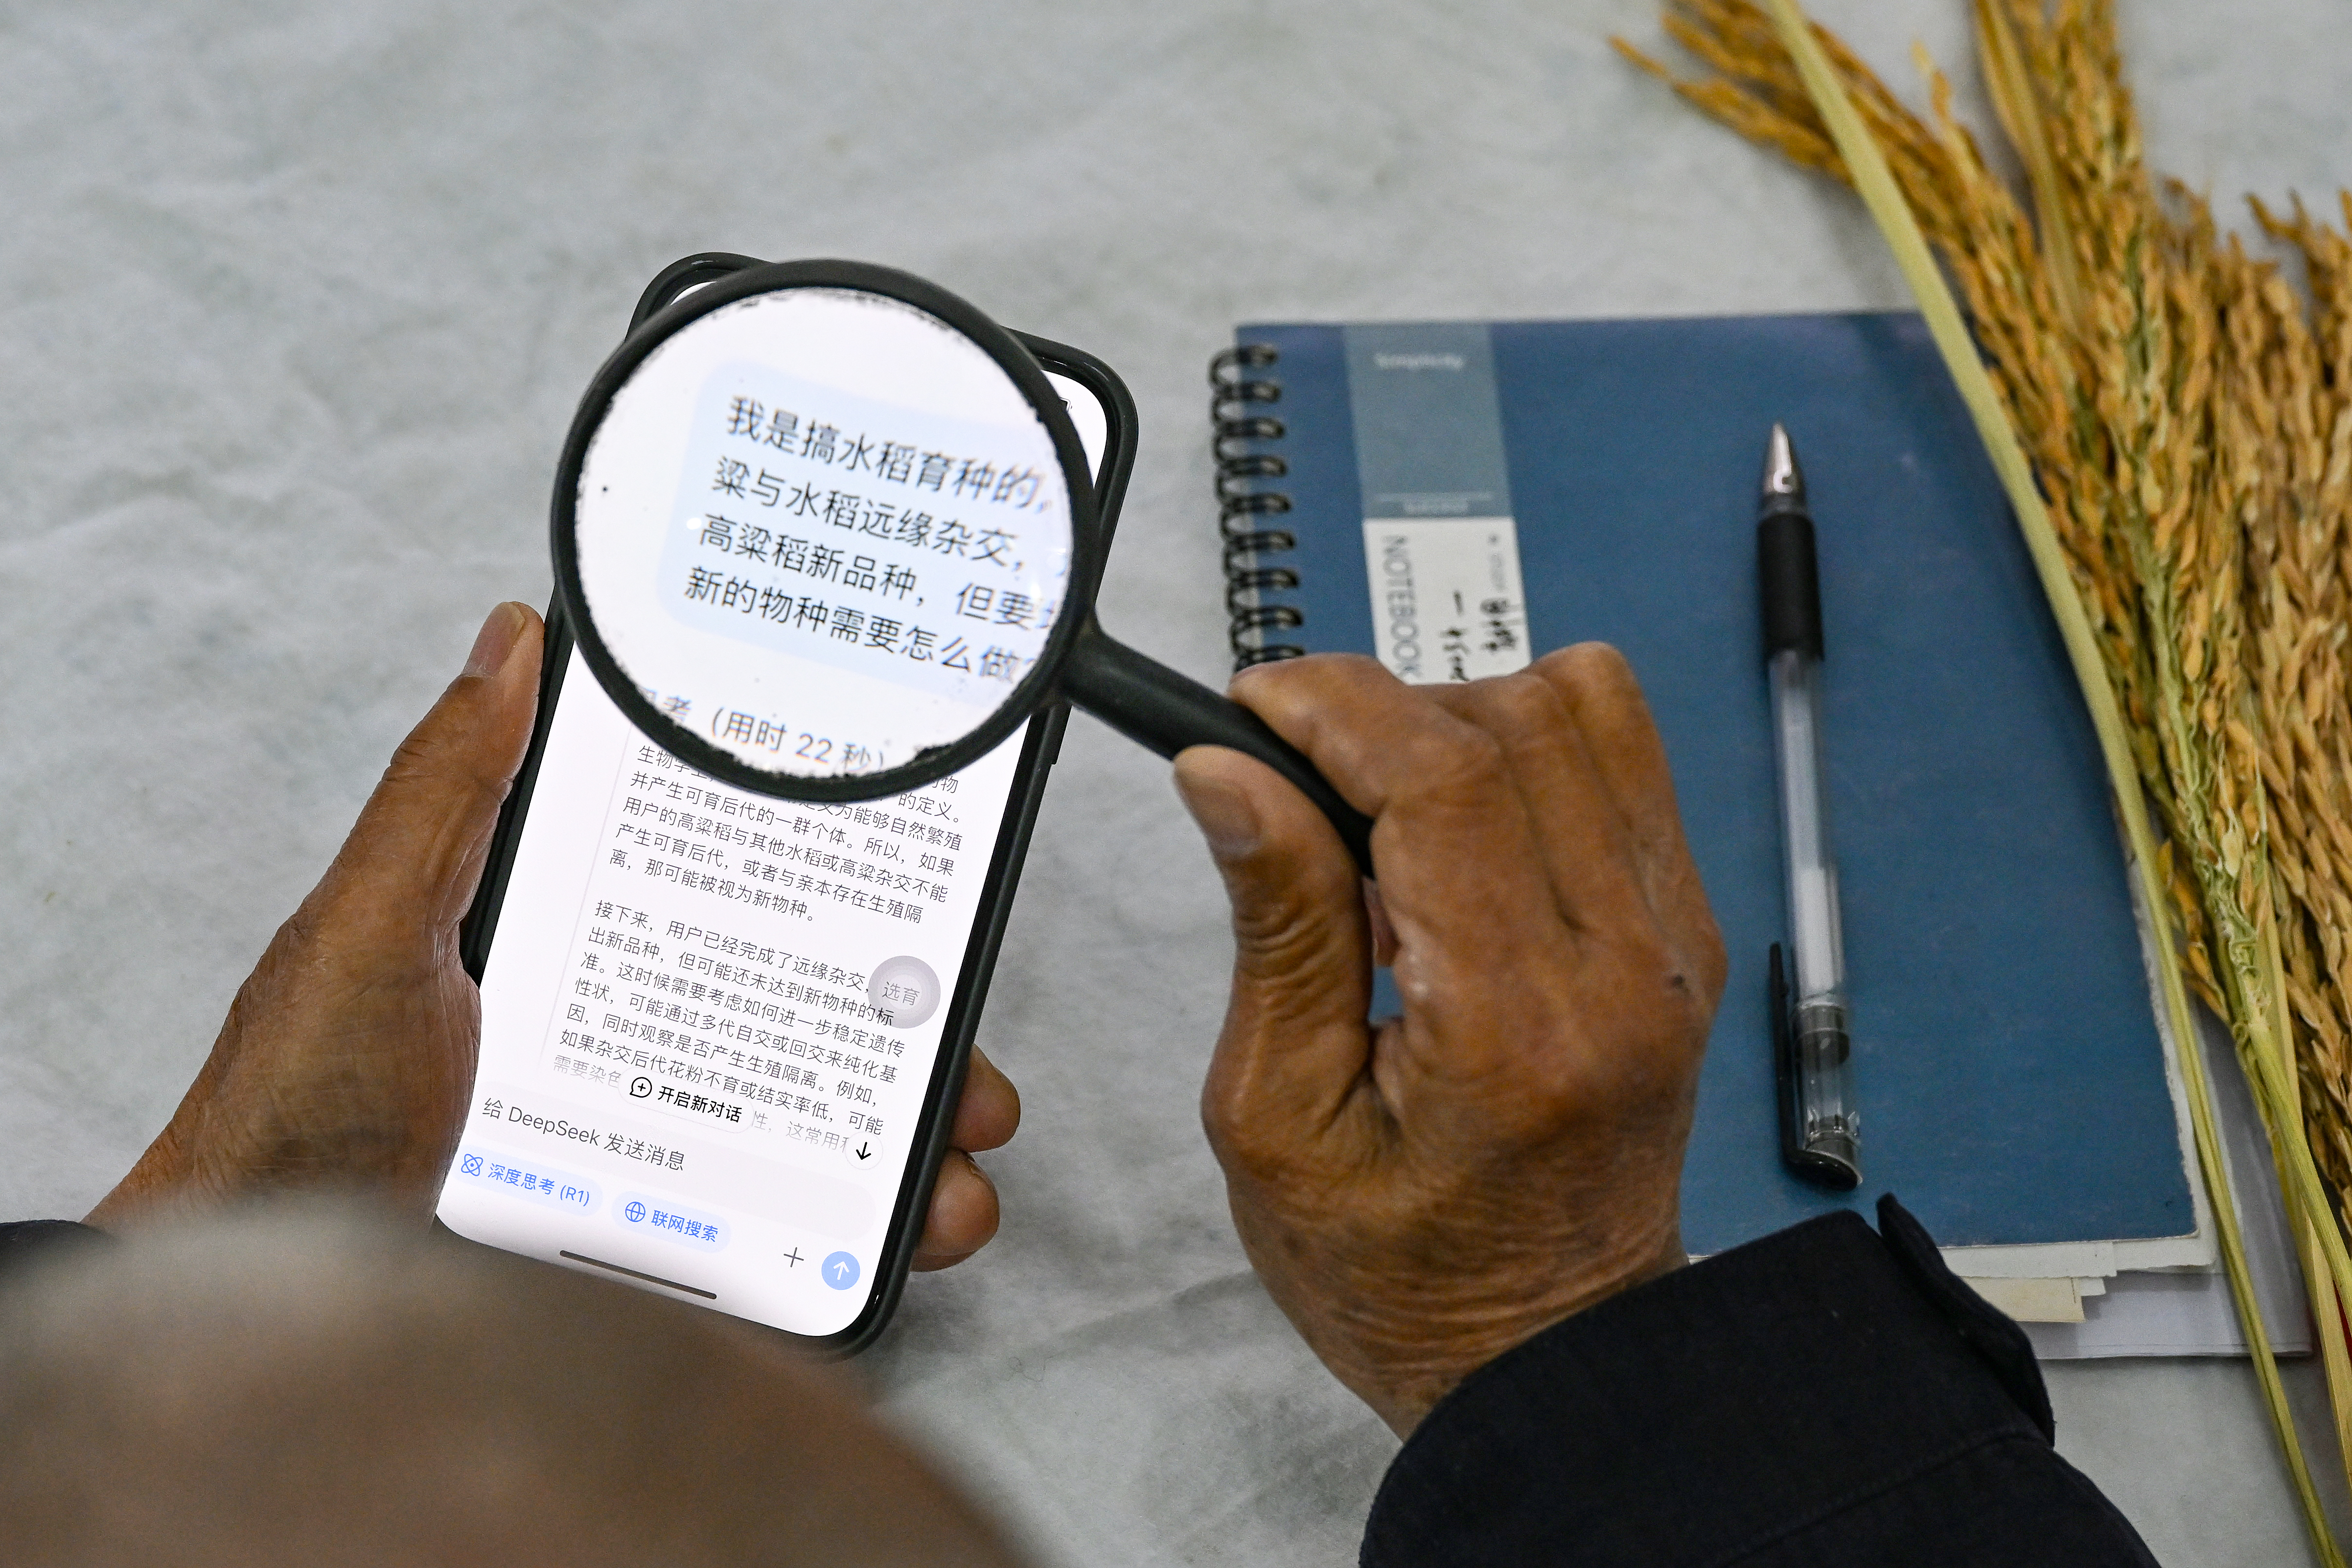 我是搞水稻育种的,
粱与水稻远缘杂交，
高粱稻新品种，但要
新的物种需要怎么做?
考（用时 22 秒）
生物学上
并产生可育后代的一群个体。所以，如果
定义为能够自然繁殖
的定义。
用户的高粱稻与其他水稻或高粱杂交不能
产生可育后代，或者与亲本存在生殖隔
离，那可能被视为新物种。
接下来，用户已经完成了远缘杂交，
出新品种，但可能还未达到新物种的标
准。这时候需要考虑如何进一步稳定遗传
性状，可能通过多代自交或回交来纯化基
因，同时观察是否产生生殖隔离。例如，
如果杂交后代花粉不育或结实率低，可能
需要染色
性，这常用
选育
开启新对话
给 DeepSeek 发送消息
深度思考 (R1)
联网搜索
Simplicity
NOTEBOOK